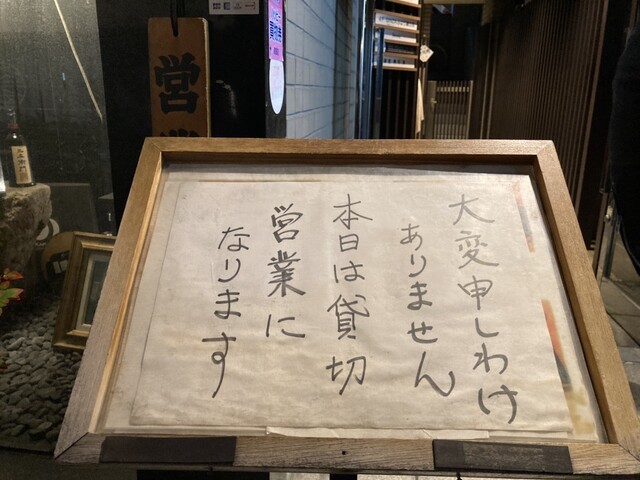 大変申しわけ
ありません
本日は貸切
営業に
なります
営業